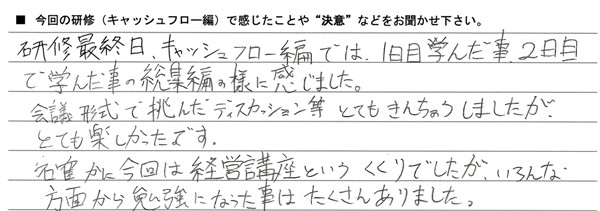 ■ 今回の研修（キャッシュフロー編）で感じたことや“決意”などをお聞かせ下さい。
研修最終日、キャッシュフロー編では、1日目学んだ事、2日目
で学んだ事の総集編の様に感じました。
会議形式で挑んだディスカッション等 とてもきんちょうしましたが、
とても楽しかったです。
確かに今回は経営講座という くくりでしたが、いろんな
方面から勉強になった事はたくさんありました。